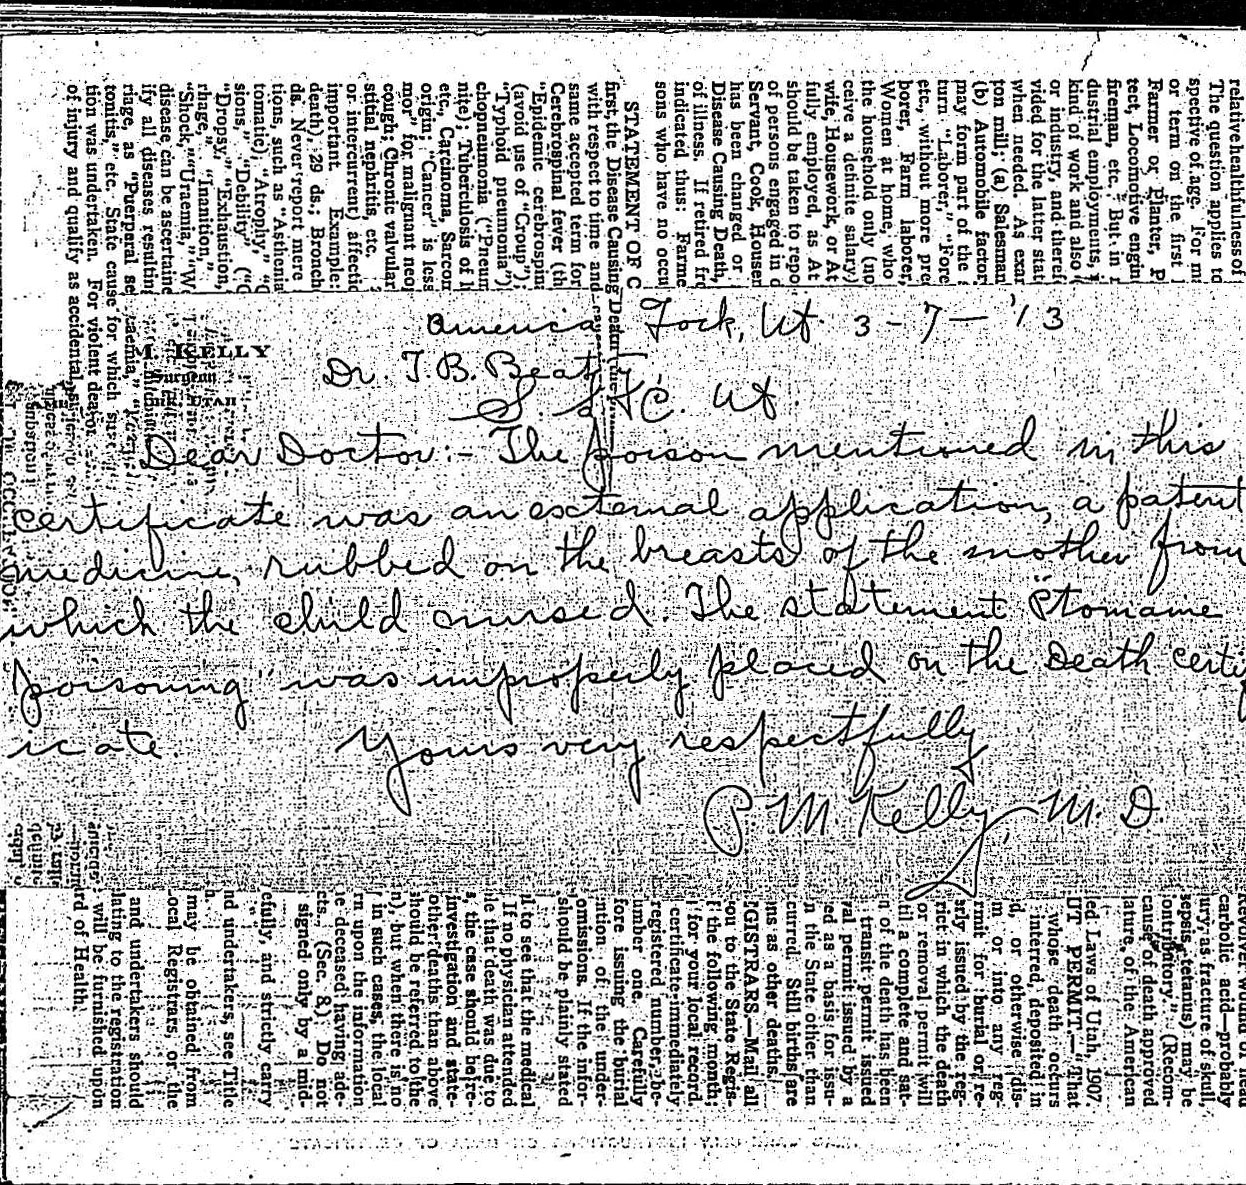 relative healthfulness of
The question applies to
spective of age. For m
or term on the first
Farmer or Planter, P
tect, Locomotive engin
fireman, etc. But in
dustrial employments,
kind of work and also
or industry, and theref
vided for the latter stat
when needed. As exam
ton mill; (a) Salesman
(b) Automobile factor
may form part of the
turn "Laborer," "Fore
etc., without more pre
borer, Farm laborer,
Women at home, who
the household only (no
ceive a definite salary)
wife, Housework, or At
fully employed, as At
should be taken to repo
of persons engaged in d
Servant, Cook, Housem
has been changed or
Disease Causing Death,
of illness. If retired fr
indicated thus: Farme
sons who have no occu
STATEMENT OF C
first, the Disease Causing Death
with respect to time and
same accepted term for
Cerebrospinal fever (th
"Epidemic cerebrospin
(avoid use of "Croup");
"Typhoid pneumonia")
chopneumonia ("Pneum
nite); Tuberculosis of l
etc., Carcinoma, Sarcom
origin; "Cancer" is less
mor" for malignant neop
cough; Chronic valvular
stitial nephritis, etc.
or intercurrent) affectio
important. Example:
death), 29 ds.; Bronch
ds. Never report mere
tions, such as "Asthenia
tomatic), "Atrophy,"
sions," "Debility"
"Dropsy," "Exhaustion,"
rhage," "Inanition,"
"Shock," "Uraemia," "W
disease can be ascertaine
ify all diseases resulting
riage, as "Puerperal se
tonitis," etc. State cause for which
tion was undertaken. For violent
of injury and qualify as accidental,
M. KELLY
Surgeon
UTAH
America Fork, Ut. 3-7-'13
Dr. T. B. Beatty
S. L. C. Ut.
Dear Doctor:- The poison mentioned in this
certificate was an external application, a patent
medicine, rubbed on the breasts of the mother from
which the child nursed. The statement "Ptomaine
poisoning" was improperly placed on the Death certif
icate. Yours very respectfully
P M Kelly, M. D.
Revolver wound of head
carbolic acid—probably
ury, as fracture of skull,
sepsis, tetanus) may be
ontributory." (Recom-
cause of death approved
lature, of the American
led Laws of Utah, 1907.
UT PERMIT.—"That
whose death occurs
interred, deposited in
d, or otherwise dis-
m or into any reg-
rmit for burial or re-
erly issued by the reg-
rict in which the death
or removal permit will
til a complete and sat-
n of the death has been
transit permit issued
val permit issued by a
ed as a basis for issu-
n the State other than
curred. Still births are
ns as other deaths.
GISTRARS.—Mail all
ou to the State Regis-
f the following month;
for your local record.
certificate immediately
registered number, be-
umber one. Carefully
fore issuing the burial
ntion of the under-
omissions. If the infor-
should be plainly stated
l to see that the medical
If no physician attended
le that death was due to
investigation and state-
s, the case should be re-
other deaths than above
should be referred to the
n), but when there is no
in such cases, the local
rn upon the information
e deceased having ade-
cts., (Sec. 8.) Do not
signed only by a mid-
efully, and strictly carry
nd undertakers, see Title
h.
may be obtained from
ocal Registrars, or the
and undertakers should
lating to the registration
will be furnished upon
rd of Health.